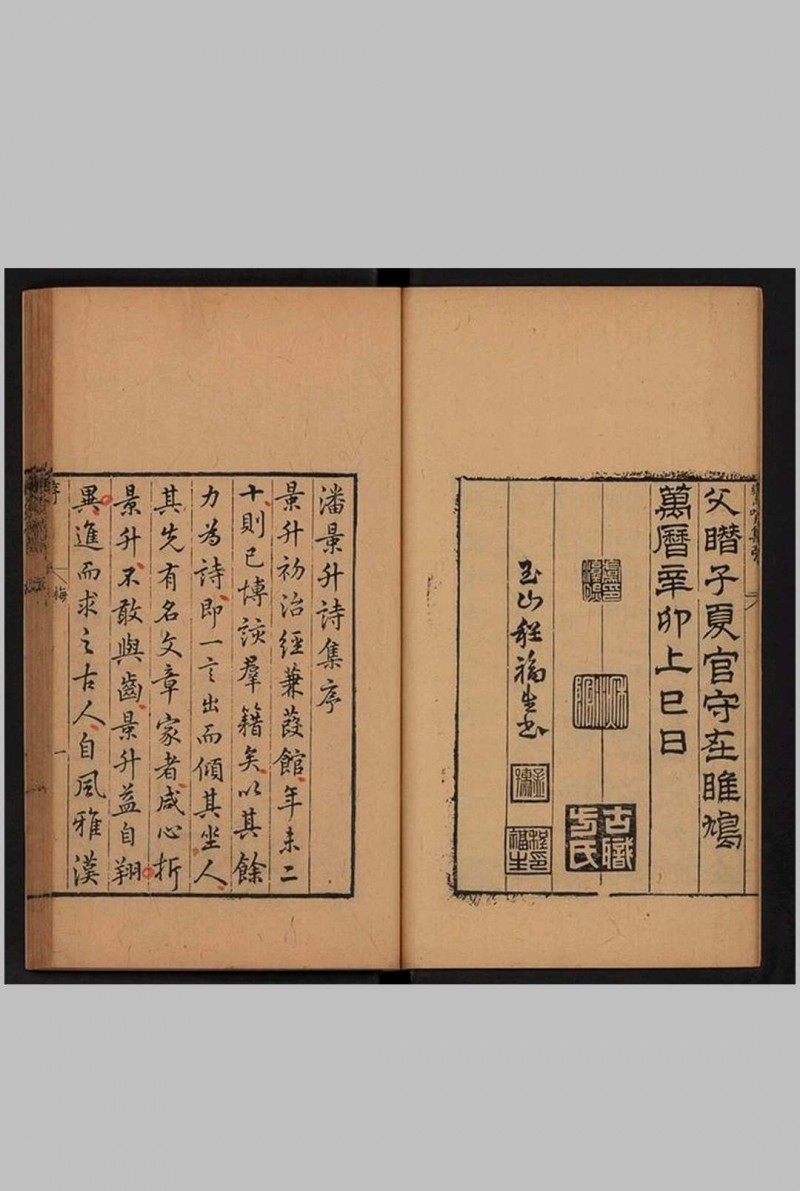 父瞻子夏官守在雎鳩
萬曆辛卯上巳日
古職方氏
玉山程福生書
程福生
潘景升詩集序
景升初治經兼葭館年未二
十則已博談羣籍矣以其餘
力為詩即一言出而傾其坐人
其先有名文章家者咸心折
景升不敢與齒景升益自翔
異進而求之古人自風雅漢
序
一
梅